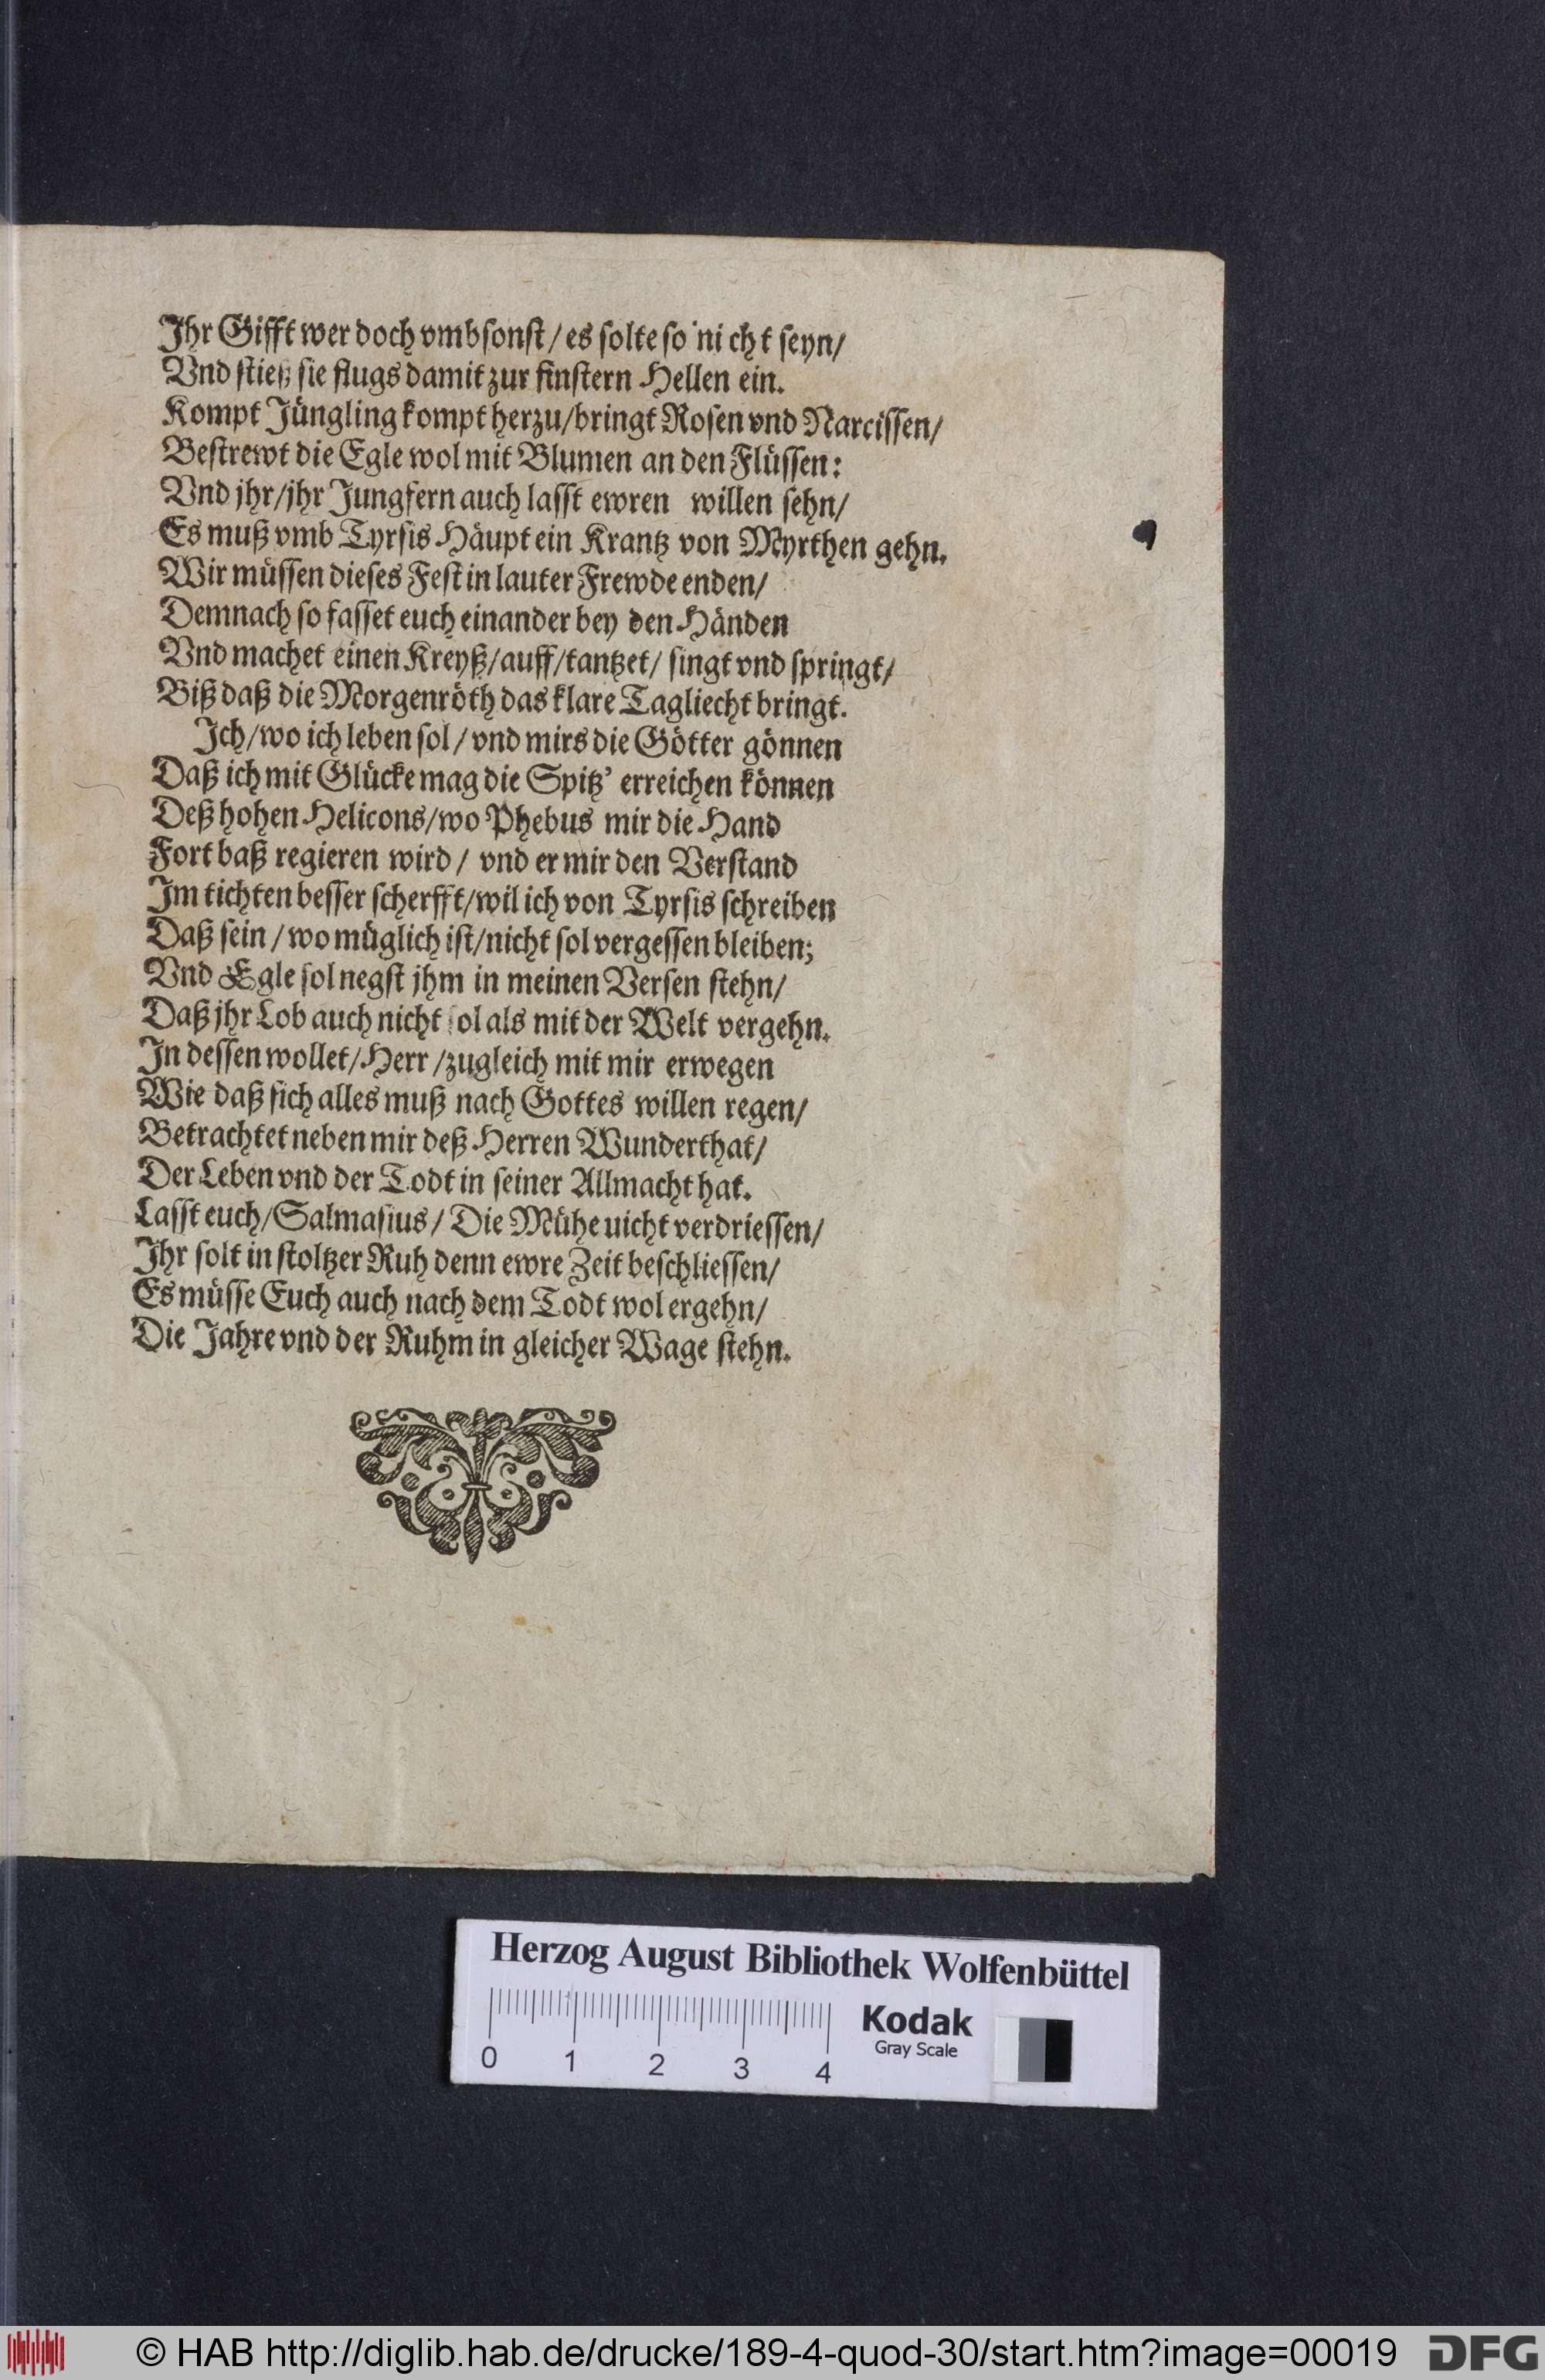 Ihr Gifft wer doch vmbsonst / es solte so nicht seyn/
Vnd stieß sie flugs damit zur finstern Hellen ein.
Kompt Jüngling kompt herzu/bringt Rosen vnd Narcissen/
Bestrewt die Egle wol mit Blumen an den Flüssen:
Vnd jhr/jhr Jungfern auch lasst ewren willen sehn/
Es muß vmb Tyrsis Häupt ein Krantz von Myrthen gehn.
Wir müssen dieses Fest in lauter Frewde enden/
Demnach so fasset euch einander bey den Händen
Vnd machet einen Kreyß/auff/tantzet/ singt vnd springt/
Biß daß die Morgenröth das klare Tagliecht bringt.
Ich/wo ich leben sol / vnd mirs die Götter gönnen
Daß ich mit Glücke mag die Spitz' erreichen können
Deß hohen Helicons/wo Phebus mir die Hand
Fort baß regieren wird / vnd er mir den Verstand
Im tichten besser scherfft/wil ich von Tyrsis schreiben
Daß sein / wo müglich ist/nicht sol vergessen bleiben;
Vnd Egle sol negst jhm in meinen Versen stehn/
Daß jhr Lob auch nicht sol als mit der Welt vergehn.
In dessen wollet/Herr /zugleich mit mir erwegen
Wie daß sich alles muß nach Gottes willen regen/
Betrachtet neben mir deß Herren Wunderthat/
Der Leben vnd der Todt in seiner Allmacht hat.
Lasst euch/Salmasius/ Die Mühe uicht verdriessen/
Ihr solt in stoltzer Ruh denn ewre Zeit beschliessen/
Es müsse Euch auch nach dem Todt wol ergehn/
Die Jahre vnd der Ruhm in gleicher Wage stehn.
Herzog August Bibliothek Wolfenbüttel
0 1 2 3 4
Kodak
Gray Scale
© HAB http://diglib.hab.de/drucke/189-4-quod-30/start.htm?image=00019
DFG